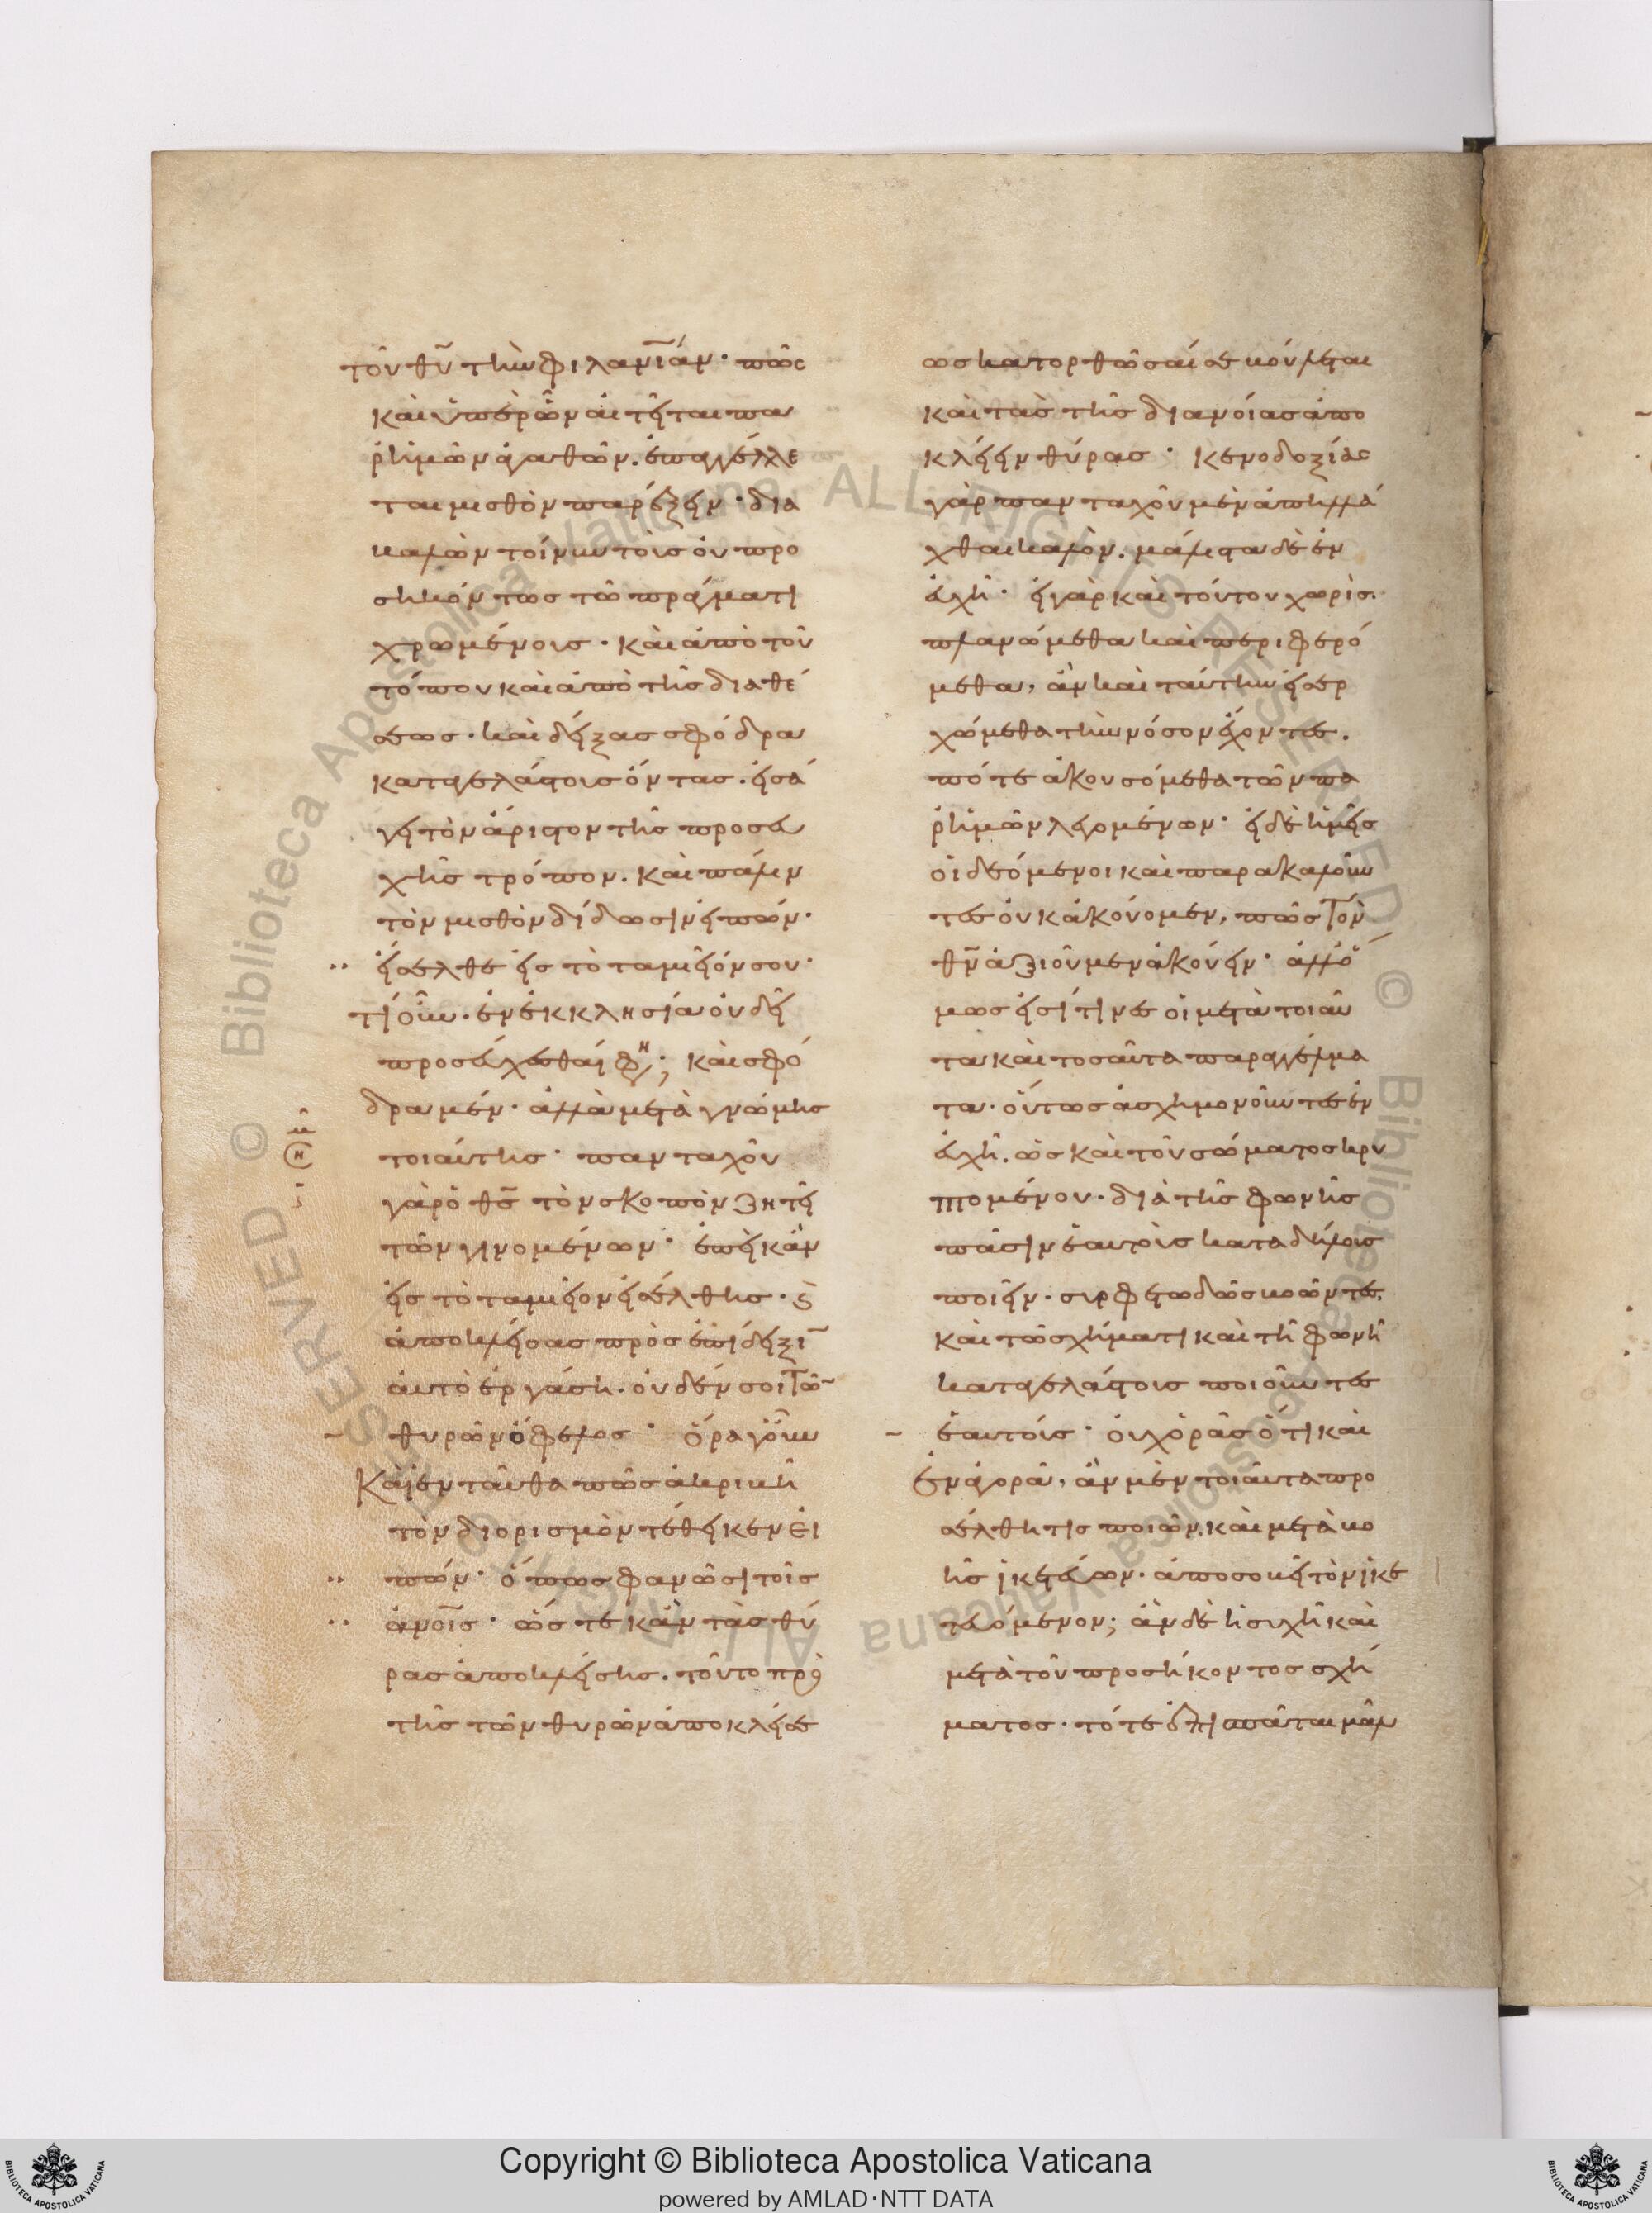 τοῦ θῦ τὴν φιλανῖαν· πῶς
καὶ ὑπὲρ ὧν αἰτεῖται πα
ρ ἡμῶν ἀγαθῶν. ἐπαγγέλλε
ται μισθὸν παρέξειν· δια
καλῶν τοίνυν τοῖς οὐ προ
σηκόντως τῶ πράγματι
χρωμένοις· καὶ ἀπὸ τοῦ
τόπου καὶ ἀπὸ τῆς διαθέ
σεως· καὶ δείξας σφόδρα
καταγελάστους ὄντας. εἰσά
γει τὸν ἄριστον τῆς προσευ
χῆς τρόπον. καὶ πάλιν
τὸν μισθὸν δίδωσιν εἰπών·
εἴσελθε εἰς τὸ ταμιεῖόν σου·
τί οὖν. ἐν ἐκκλησία οὐ δεῖ
προσεύχεσθαί φη; καὶ σφό
δρα μέν· ἀλλὰ μετὰ γνώμης
τοιαύτης· πανταχοῦ
γὰρ ὁ θς τὸν σκοπὸν ζητεῖ
τῶν γινομένων· ἐπεὶ κἂν
εἰς τὸ ταμιεῖον εἰσέλθης· ϛ
ἀποκλείσας πρὸς ἐπίδειξι
αὐτὸ ἐργάση. οὐδέν σοι τῶ
θυρῶν ὄφελος· ὅρα γοῦν
Καὶ ἐνταῦθα πῶς ἀκριβῆ
τὸν διορισμὸν τέθεικεν εἰ
πών· ὅπως φανῶσι τοῖς
ἀνοῖς· ὥστε κἂν τὰς θύ
ρας ἀποκλείσης. τοῦτο πρὸ
τῆς τῶν θυρῶν ἀποκλείσε
ως κατορθῶσαί σε βούλεται
καὶ τὰς τῆς διανοίας ἀπο
κλείειν θύρας· κενοδοξίας
γὰρ πανταχοῦ μὲν ἀπηλλά
χθαι καλὸν. μάλιστα δὲ ἐν
εὐχῆ· εἰ γὰρ καὶ τούτου χωρὶς
πλανώμεθα καὶ περιφερό
μεθα, ἂν καὶ ταύτην εἰσερ
χώμεθα τὴν νόσον ἔχοντες.
πότε ἀκουσόμεθα τῶν πα
ρ ἡμῶν λεγομένων· εἰ δὲ ἡμεῖς
οἱ δεόμενοι καὶ παρακαλοῦν
τες οὐκ ἀκούομεν, πῶς τὸν
θν ἀξιοῦμεν ἀκούειν· ἀλλ ὅ
μως εἰσί τινες οἱ μετὰ τοιαῦ
τα καὶ τοσαῦτα παραγγέλμα
τα· οὕτως ἀσχημονοῦντες ἐν
εὐχῆ. ὡς καὶ τοῦ σώματος κρυ
πτομένου· διὰ τῆς φωνῆς
πᾶσιν ἑαυτοὺς καταδήλους
ποιεῖν· συρφετωδῶς βοῶντες.
καὶ τῶ σχήματι καὶ τῆ φωνῆ
καταγελάστους ποιοῦντες
ἑαυτούς· οὐχ ὁρᾶς ὅτι καὶ
ἐν ἀγορᾶ, ἂν μὲν τοιαῦτα προ
σέλθη τις ποιῶν. καὶ μετὰ βο
ῆς ἱκετεύων· ἀποσοβεῖ τὸν ἱκε
τευόμενον; ἂν δὲ ἡσυχῆ καὶ
μετὰ τοῦ προσήκοντος σχή
ματος· τότε